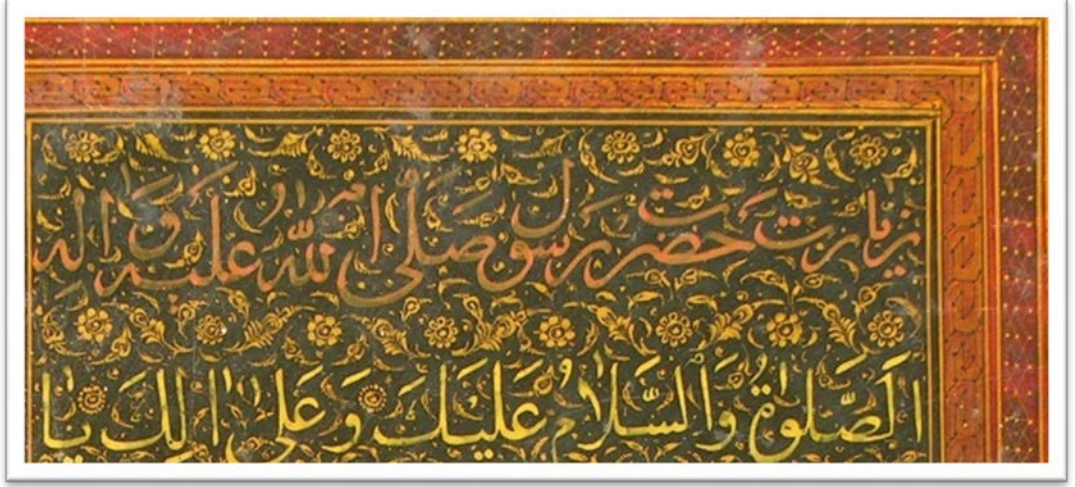 زيارت حضرت رسول صلى الله عليه و اله
اَلصَّلوٰةُ وَالسَّلَامُ عَلَيْكَ وَ عَلىٰ الِكَ يَا